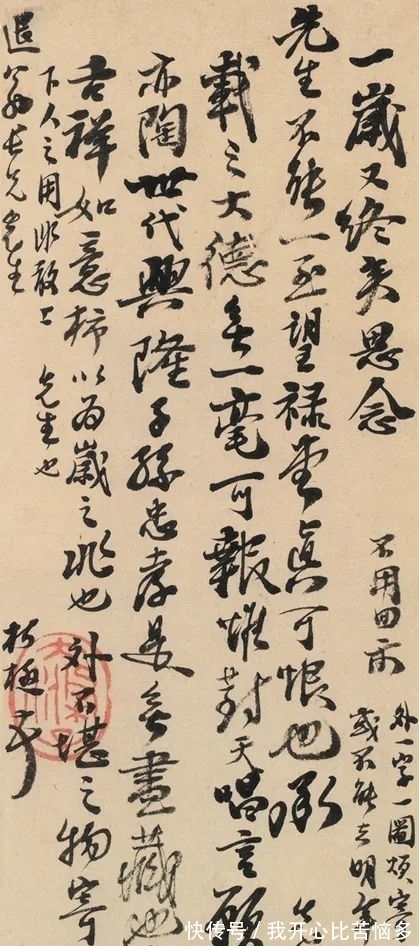 一歲又終矣思念
先生不能一至望祿堂真可恨也承
載之大德無一毫可報惟對天唱言願
亦陶世代興隆子孫忠孝是無盡藏也
吉祥如意柿以為歲之兆也 外不堪之物寄
下人之用非敢上 先生也
退翁長兄先生
朽極手
不用回示
外一字一圖煩寄
或不能去明年
快传号/我开心比苦恼多